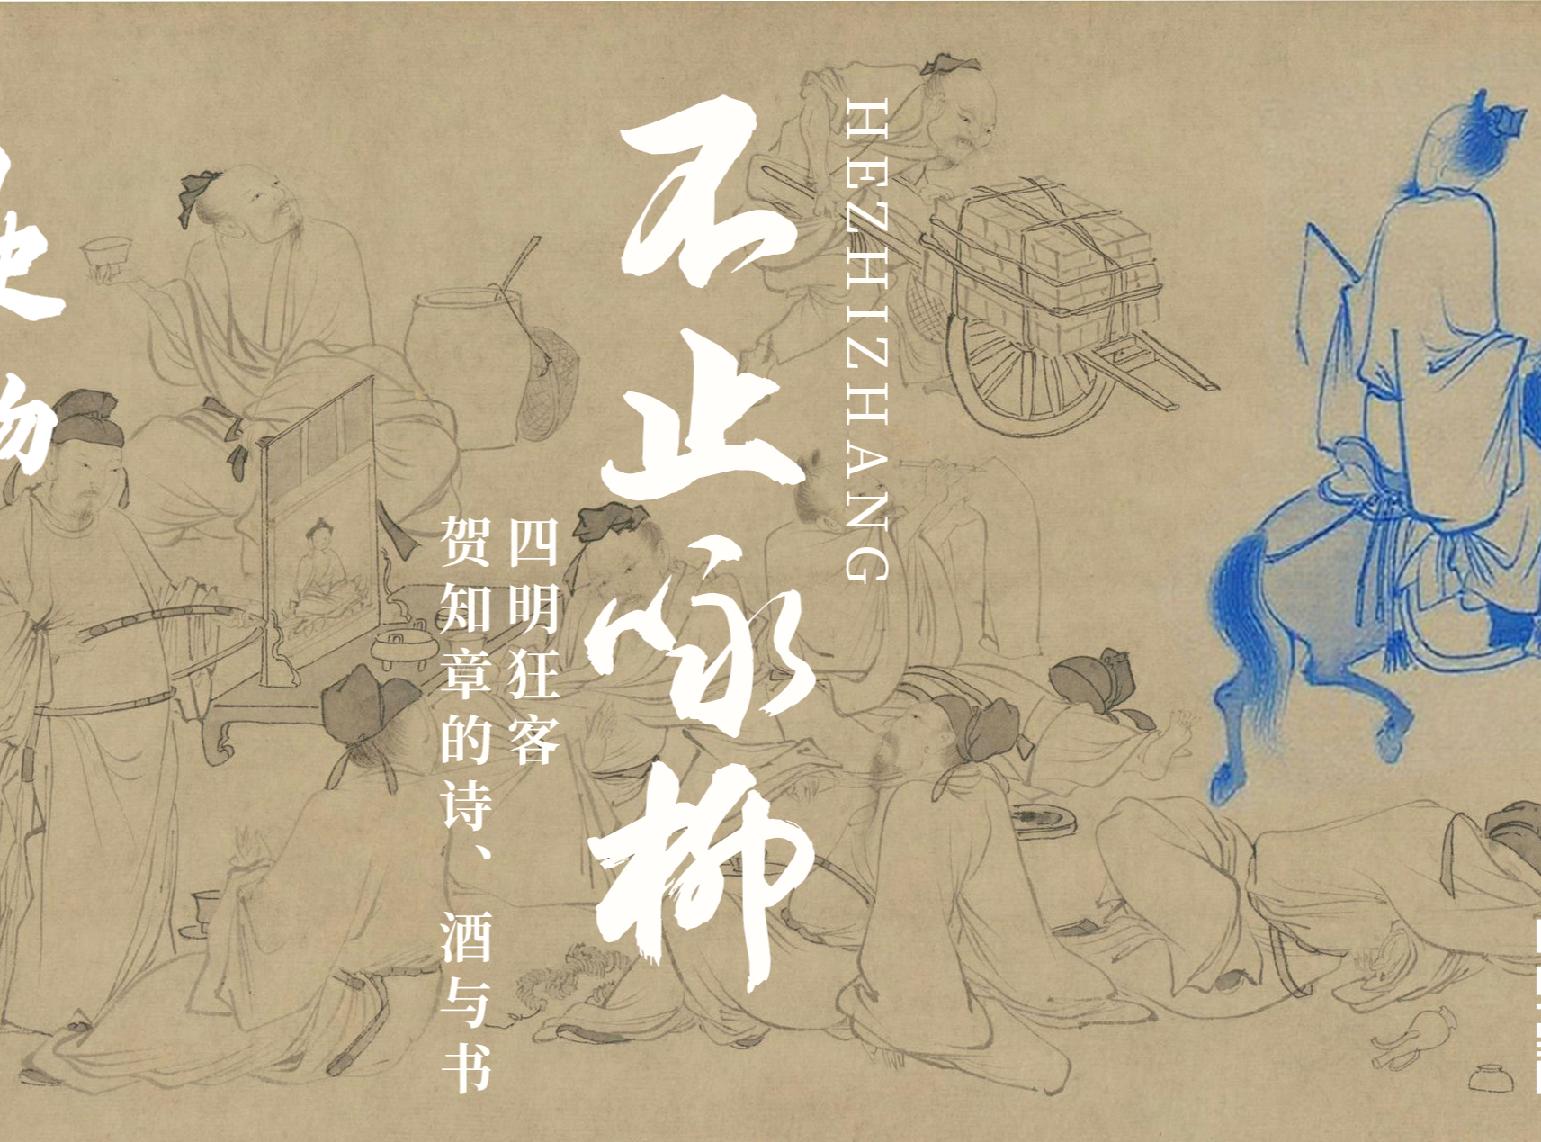 HEZHIZHANG
不止咏柳
四明狂客
贺知章的诗、酒与书